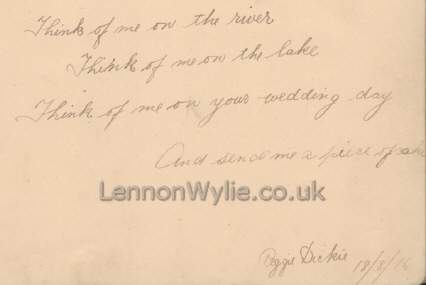 Think of me on the river
Think of me on the lake
Think of me on your wedding day
And send me a piece of cake
LennonWylie.co.uk
Peggie Dickie 18/8/16